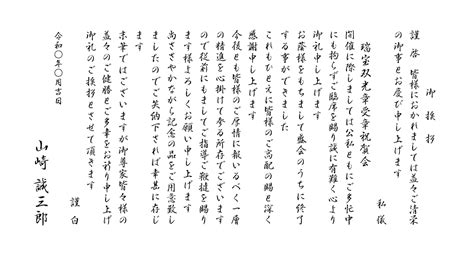 御挨拶
謹啓 皆様におかれましては益々ご清栄
の御事とお慶び申し上げます
私儀
瑞宝双光章受章祝賀会
開催に際しましては公私ともにご多忙中
にも拘らずご臨席を賜り誠に有難く心より
御礼申し上げます
お蔭様をもちまして盛会のうちに終了
する事ができました
これもひとえに皆様のご高配の賜と深く
感謝申し上げます
今後とも皆様のご厚情に報いるべく一層
の精進を心掛けて参る所存でございます
ので従前にもましてご指導ご鞭撻を賜り
ます様よろしくお願い申し上げます
尚ささやかながら記念の品をご用意致し
ましたのでご笑納下されば幸甚に存じ
ます
末筆ではございますが御尊家皆々様の
益々のご健勝とご多幸をお祈り申し上げ
御礼のご挨拶とさせて頂きます
謹白
令和〇年〇月吉日
山崎誠三郎